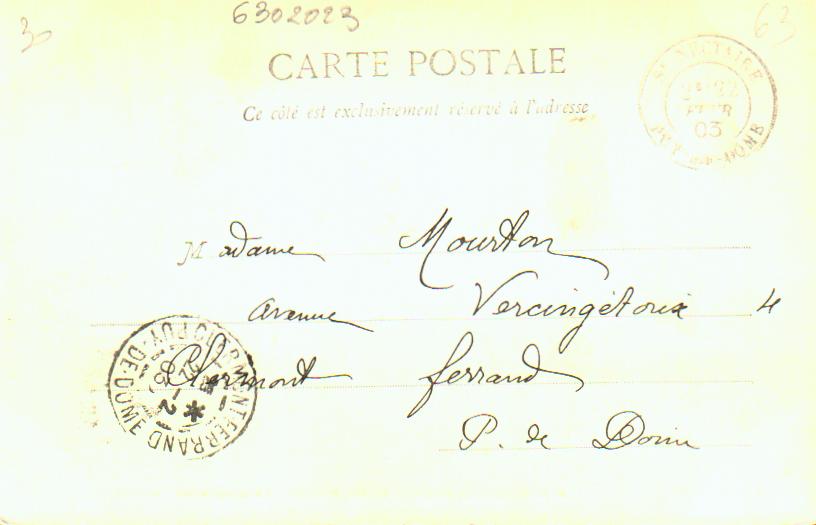 30
6302023
63
CARTE POSTALE
Ce côté est exclusivement réservé à l'adresse
ST NECTAIRE
22
FEVR
03
PUY-DE-DÔME
Madame Mourton
avenue Vercingétorix 4
Clermont ferrand
P. de Dôme
CLERMONT-FERRAND
PUY-DE-DOME